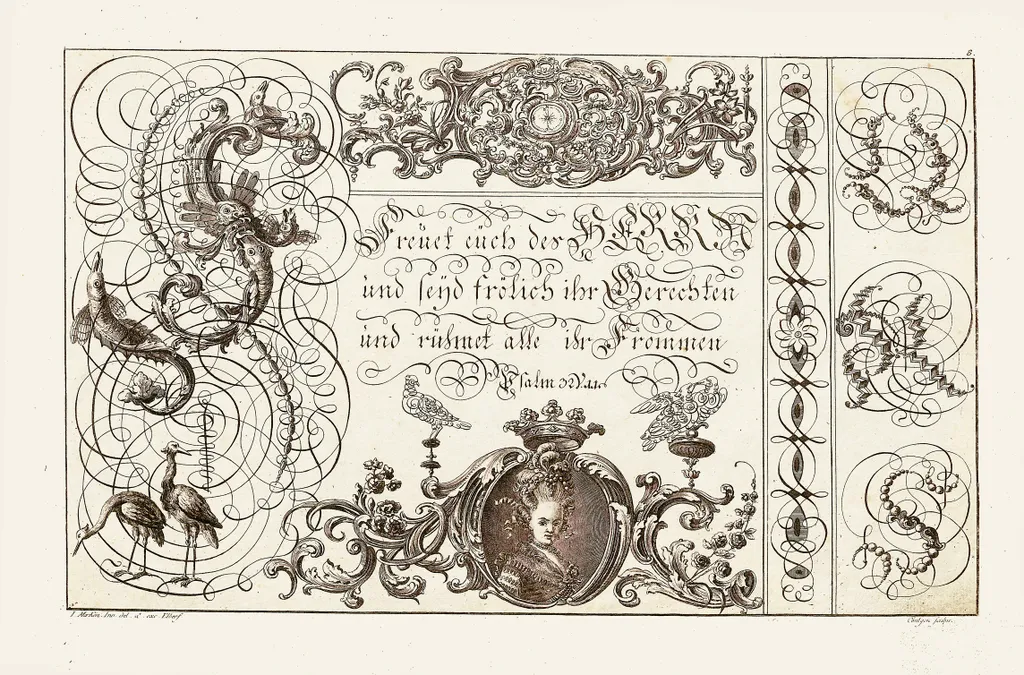 8.
Freuet euch des HERRN
und seÿd frölich ihr Gerechten
und rühmet alle ihr Frommen
Psalm 32 V. 11.
inv. del. et exc. Elberf.
sculps.